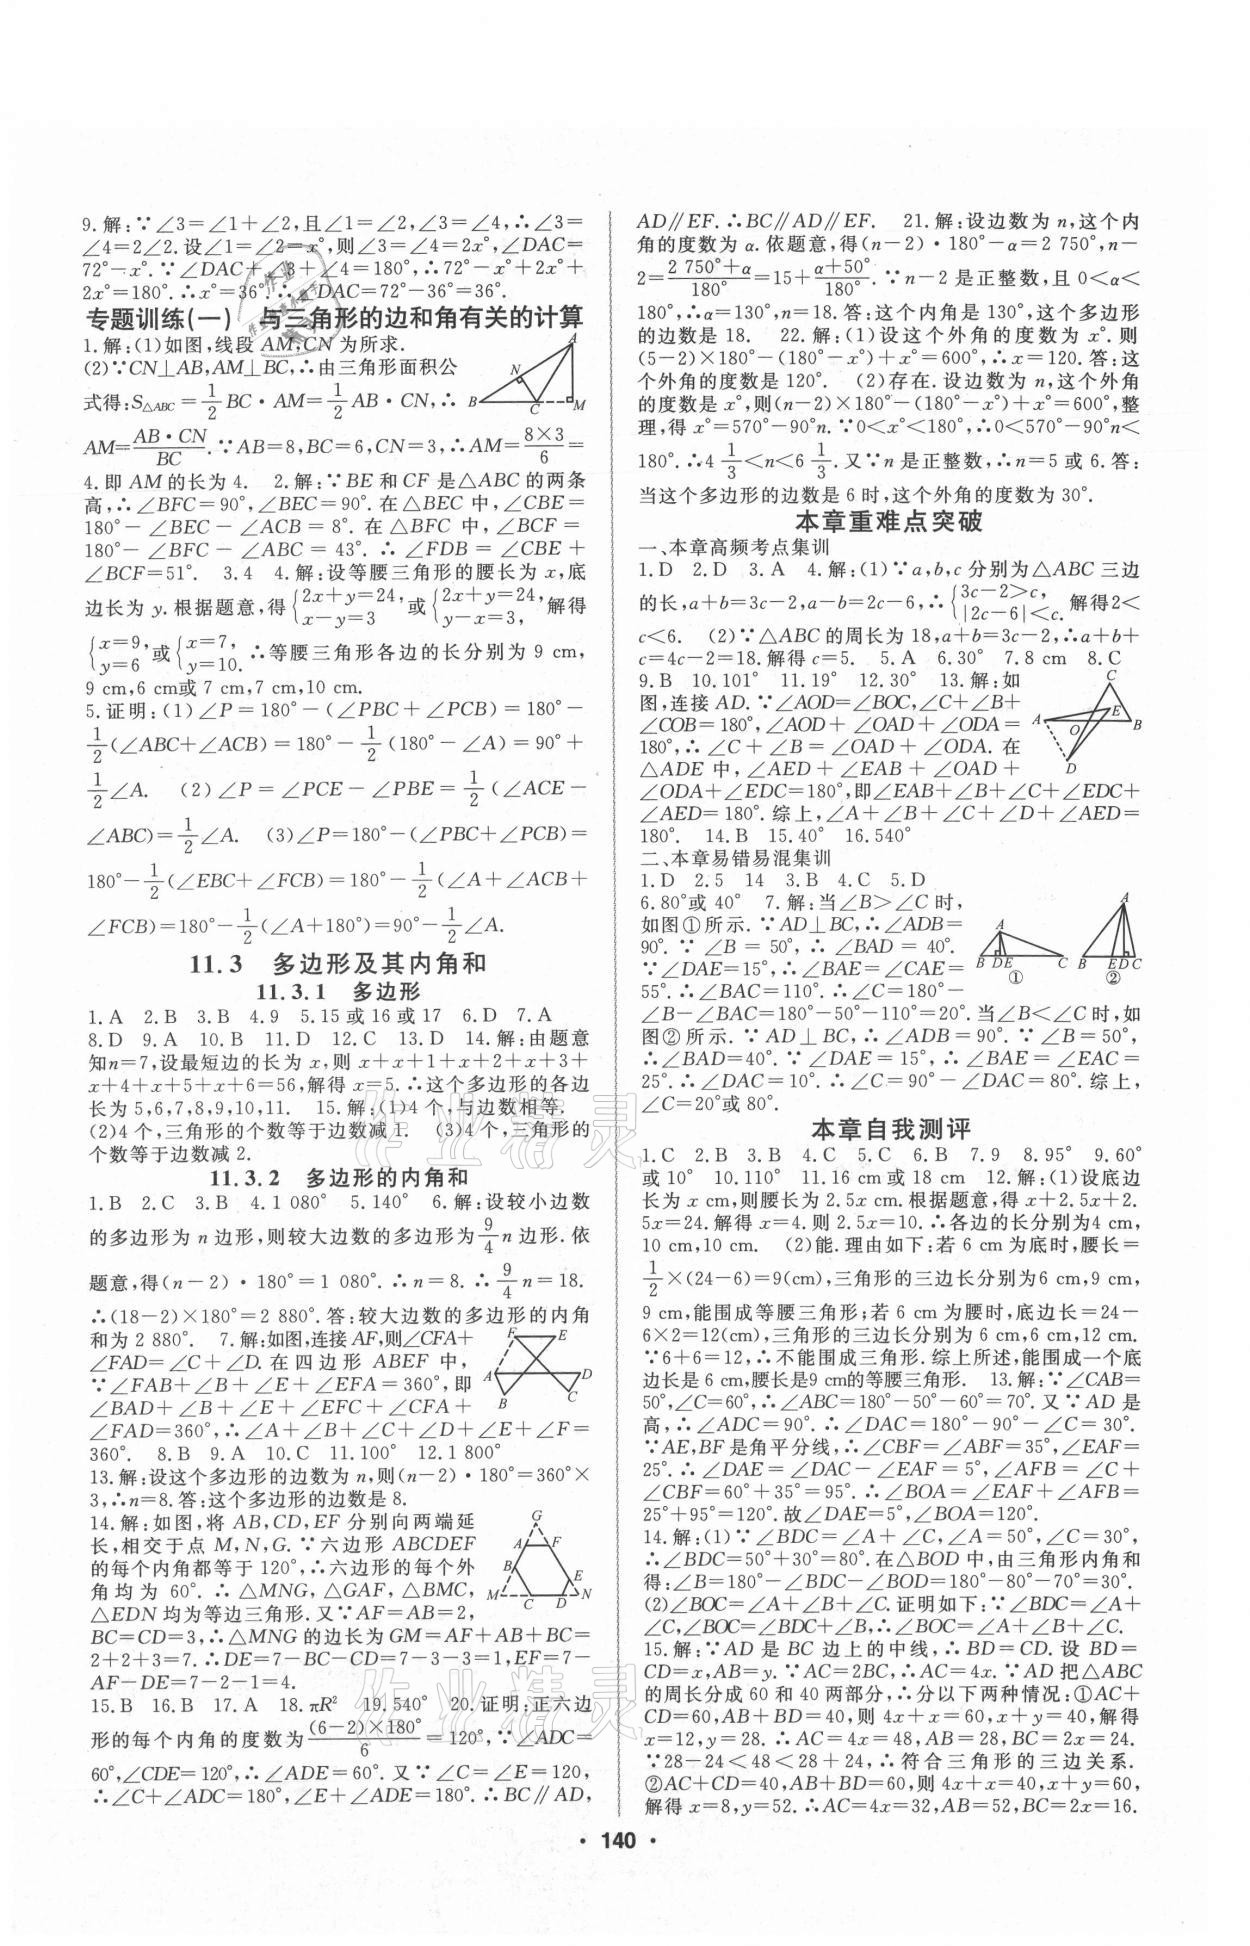 9.解:∵∠3=∠1+∠2,且∠1=∠2,∠3=∠4,∴∠3=
∠4=2∠2.设∠1=∠2=x°,则∠3=∠4=2x°,∠DAC=
72°-x°.∵∠DAC+∠3+∠4=180°,∴72°-x°+2x°+
2x°=180°.∴x°=36°.∴∠DAC=72°-36°=36°.
专题训练(一) 与三角形的边和角有关的计算
1.解:(1)如图,线段AM,CN为所求.
(2)∵CN⊥AB,AM⊥BC,∴由三角形面积公
式得:S△ABC=1/2BC·AM=1/2AB·CN,∴
AM=AB·CN/BC.∵AB=8,BC=6,CN=3,∴AM=8×3/6=
4.即AM的长为4. 2.解:∵BE和CF是△ABC的两条
高,∴∠BFC=90°,∠BEC=90°.在△BEC中,∠CBE=
180°-∠BEC-∠ACB=8°.在△BFC中,∠BCF=
180°-∠BFC-∠ABC=43°.∴∠FDB=∠CBE+
∠BCF=51°. 3.4 4.解:设等腰三角形的腰长为x,底
边长为y.根据题意,得{2x+y=24,x-y=3 或{2x+y=24,y-x=3, 解得
{x=9,y=6 或{x=7,y=10. ∴等腰三角形各边的长分别为9 cm,
9 cm,6 cm或7 cm,7 cm,10 cm.
5.证明:(1)∠P=180°-(∠PBC+∠PCB)=180°-
1/2(∠ABC+∠ACB)=180°-1/2(180°-∠A)=90°+
1/2∠A. (2)∠P=∠PCE-∠PBE=1/2(∠ACE-
∠ABC)=1/2∠A. (3)∠P=180°-(∠PBC+∠PCB)=
180°-1/2(∠EBC+∠FCB)=180°-1/2(∠A+∠ACB+
∠FCB)=180°-1/2(∠A+180°)=90°-1/2∠A.
11.3 多边形及其内角和
11.3.1 多边形
1.A 2.B 3.B 4.9 5.15或16或17 6.D 7.A
8.D 9.A 10.B 11.D 12.C 13.D 14.解:由题意
知n=7,设最短边的长为x,则x+x+1+x+2+x+3+
x+4+x+5+x+6=56,解得x=5.∴这个多边形的各边
长为5,6,7,8,9,10,11. 15.解:(1)4个,与边数相等.
(2)4个,三角形的个数等于边数减1. (3)4个,三角形的
个数等于边数减2.
11.3.2 多边形的内角和
1.B 2.C 3.B 4.1 080° 5.140° 6.解:设较小边数
的多边形为n边形,则较大边数的多边形为9/4n边形.依
题意,得(n-2)·180°=1 080°.∴n=8.∴9/4n=18.
∴(18-2)×180°=2 880°.答:较大边数的多边形的内角
和为2 880°. 7.解:如图,连接AF,则∠CFA+
∠FAD=∠C+∠D.在四边形ABEF中,
∵∠FAB+∠B+∠E+∠EFA=360°,即
∠BAD+∠B+∠E+∠EFC+∠CFA+
∠FAD=360°,∴∠A+∠B+∠C+∠D+∠E+∠F=
360°. 8.B 9.A 10.C 11.100° 12.1 800°
13.解:设这个多边形的边数为n,则(n-2)·180°=360°×
3,∴n=8.答:这个多边形的边数是8.
14.解:如图,将AB,CD,EF分别向两端延
长,相交于点M,N,G.∵六边形ABCDEF
的每个内角都等于120°,∴六边形的每个外
角均为60°.∴△MNG,△GAF,△BMC,
△EDN均为等边三角形.又∵AF=AB=2,
BC=CD=3,∴△MNG的边长为GM=AF+AB+BC=
2+2+3=7.∴DE=7-BC-CD=7-3-3=1,EF=7-
AF-DE=7-2-1=4.
15.B 16.B 17.A 18.πR² 19.540° 20.证明:正六边
形的每个内角的度数为(6-2)×180°/6=120°,∵∠ADC=
60°,∠CDE=120°,∴∠ADE=60°.又∵∠C=∠E=120,
∴∠C+∠ADC=180°,∠E+∠ADE=180°.∴BC∥AD,
AD∥EF.∴BC∥AD∥EF. 21.解:设边数为n,这个内
角的度数为α.依题意,得(n-2)·180°-α=2 750°,n-
2=2 750°+α/180°=15+α+50°/180°.∵n-2是正整数,且0<α<
180°,∴α=130°,n=18.答:这个内角是130°,这个多边形
的边数是18. 22.解:(1)设这个外角的度数为x°.则
(5-2)×180°-(180°-x°)+x°=600°,∴x=120.答:这
个外角的度数是120°. (2)存在.设边数为n,这个外角
的度数是x°,则(n-2)×180°-(180°-x°)+x°=600°,整
理,得x°=570°-90°n.∵0<x°<180°,∴0<570°-90°n<
180°.∴4 1/3<n<6 1/3.又∵n是正整数,∴n=5或6.答:
当这个多边形的边数是6时,这个外角的度数为30°.
本章重难点突破
一、本章高频考点集训
1.D 2.D 3.A 4.解:(1)∵a,b,c分别为△ABC三边
的长,a+b=3c-2,a-b=2c-6,∴{3c-2>c,|2c-6|<c. 解得2<
c<6. (2)∵△ABC的周长为18,a+b=3c-2,∴a+b+
c=4c-2=18.解得c=5. 5.A 6.30° 7.8 cm 8.C
9.B 10.101° 11.19° 12.30° 13.解:如
图,连接AD.∵∠AOD=∠BOC,∠C+∠B+
∠COB=180°,∠AOD+∠OAD+∠ODA=
180°,∴∠C+∠B=∠OAD+∠ODA.在
△ADE中,∠AED+∠EAB+∠OAD+
∠ODA+∠EDC=180°,即∠EAB+∠B+∠C+∠EDC+
∠AED=180°.综上,∠A+∠B+∠C+∠D+∠AED=
180°. 14.B 15.40° 16.540°
二、本章易错易混集训
1.D 2.5 14 3.B 4.C 5.D
6.80°或40° 7.解:当∠B>∠C时,
如图①所示.∵AD⊥BC,∴∠ADB=
90°.∵∠B=50°,∴∠BAD=40°.
∵∠DAE=15°,∴∠BAE=∠CAE=
55°.∴∠BAC=110°.∴∠C=180°-
∠B-∠BAC=180°-50°-110°=20°.当∠B<∠C时,如
图②所示.∵AD⊥BC,∴∠ADB=90°.∵∠B=50°,
∴∠BAD=40°.∵∠DAE=15°,∴∠BAE=∠EAC=
25°.∴∠DAC=10°.∴∠C=90°-∠DAC=80°.综上,
∠C=20°或80°.
本章自我测评
1.C 2.B 3.B 4.C 5.C 6.B 7.9 8.95° 9.60°
或10° 10.110° 11.16 cm或18 cm 12.解:(1)设底边
长为x cm,则腰长为2.5x cm.根据题意,得x+2.5x+2.
5x=24.解得x=4.则2.5x=10.∴各边的长分别为4 cm,
10 cm,10 cm. (2)能.理由如下:若6 cm为底时,腰长=
1/2×(24-6)=9(cm),三角形的三边长分别为6 cm,9 cm,
9 cm,能围成等腰三角形;若6 cm为腰时,底边长=24-
6×2=12(cm),三角形的三边长分别为6 cm,6 cm,12 cm.
∵6+6=12,∴不能围成三角形.综上所述,能围成一个底
边长是6 cm,腰长是9 cm的等腰三角形. 13.解:∵∠CAB=
50°,∠C=60°,∴∠ABC=180°-50°-60°=70°.又∵AD是
高,∴∠ADC=90°.∴∠DAC=180°-90°-∠C=30°.
∵AE,BF是角平分线,∴∠CBF=∠ABF=35°,∠EAF=
25°.∴∠DAE=∠DAC-∠EAF=5°,∠AFB=∠C+
∠CBF=60°+35°=95°.∴∠BOA=∠EAF+∠AFB=
25°+95°=120°.故∠DAE=5°,∠BOA=120°.
14.解:(1)∵∠BDC=∠A+∠C,∠A=50°,∠C=30°,
∴∠BDC=50°+30°=80°.在△BOD中,由三角形内角和
得:∠B=180°-∠BDC-∠BOD=180°-80°-70°=30°.
(2)∠BOC=∠A+∠B+∠C.证明如下:∵∠BDC=∠A+
∠C,∠BOC=∠BDC+∠B,∴∠BOC=∠A+∠B+∠C.
15.解:∵AD是BC边上的中线,∴BD=CD.设BD=
CD=x,AB=y.∵AC=2BC,∴AC=4x.∵AD把△ABC
的周长分成60和40两部分,∴分以下两种情况:①AC+
CD=60,AB+BD=40,则4x+x=60,x+y=40,解得
x=12,y=28.∴AC=4x=48,AB=28,BC=2x=24.
∵28-24<48<28+24,∴符合三角形的三边关系.
②AC+CD=40,AB+BD=60,则4x+x=40,x+y=60,
解得x=8,y=52.∴AC=4x=32,AB=52,BC=2x=16.
· 140 ·